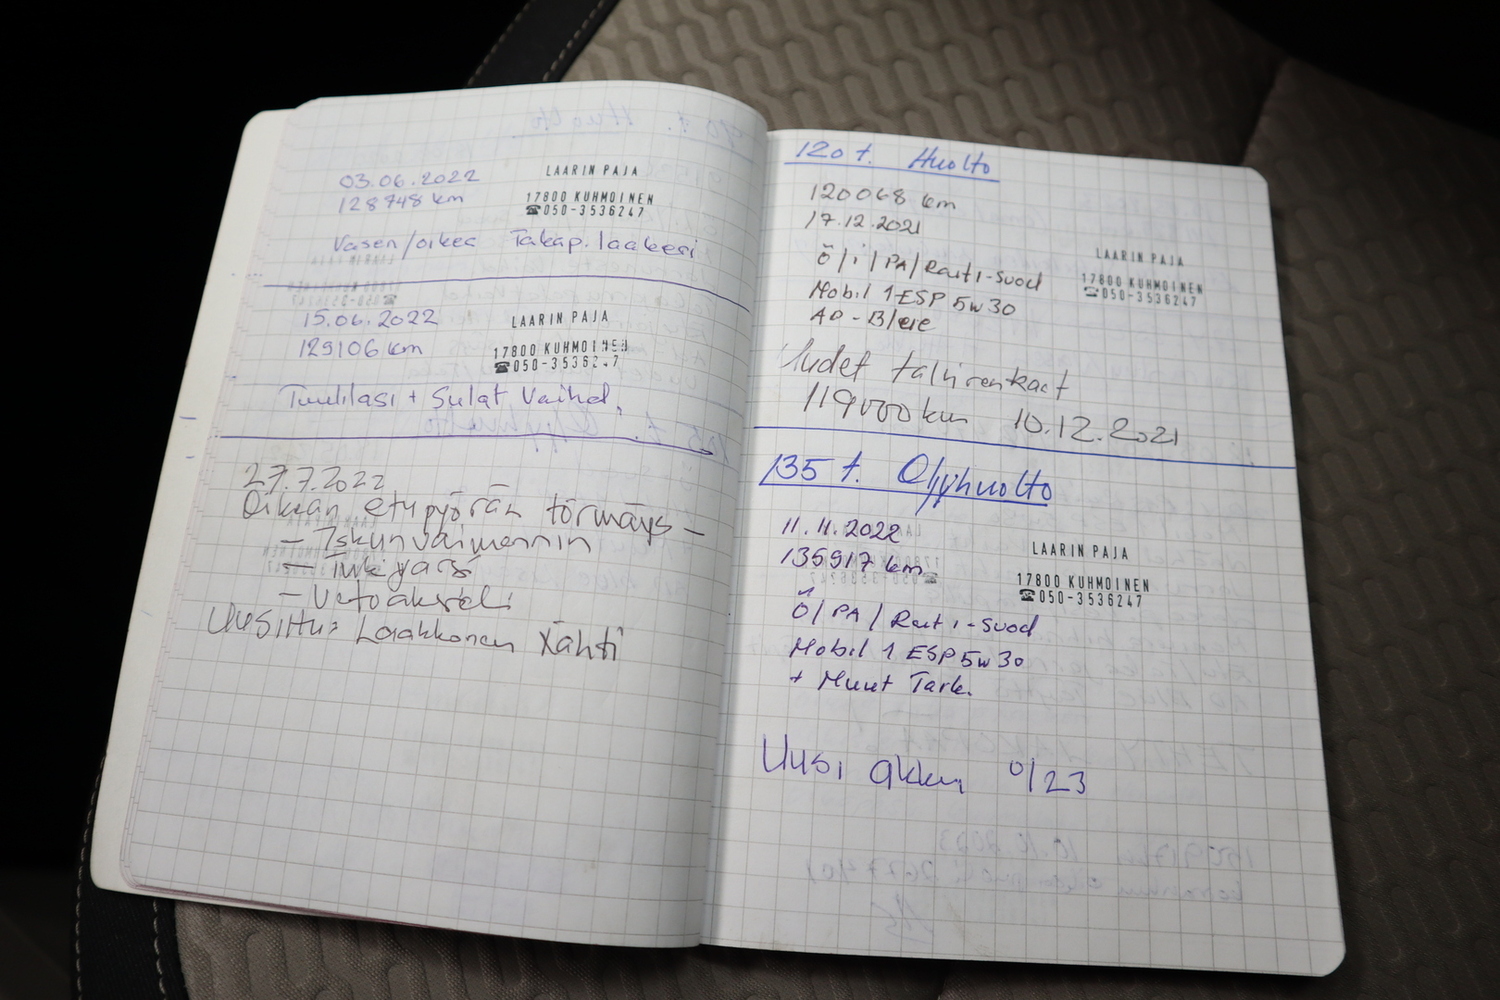 03.06.2022
128748 km
LAARIN PAJA
17800 KUHMOINEN
☎050-3536247
Vasen/oikea Takap. laakeri
15.06.2022
129106 km
LAARIN PAJA
17800 KUHMOINEN
☎050-3536247
Tuulilasi + Sulat Vaihd.
27.7.2022
Oikean etupyörän törmäys -
- Iskunvaimennin
- Tukivarsi
- Vetoakseli
Uusittu: Laakkonen Lahti
120 t. Huolto
120068 km
17.12.2021
LAARIN PAJA
17800 KUHMOINEN
☎050-3536247
Ö/i/PA/Rait i-suod
Mobil 1 ESP 5w30
AD-Blue
Uudet talvirenkaat
119000 km 10.12.2021
135 t. Öljyhuolto
11.11.2022
135917 km
LAARIN PAJA
17800 KUHMOINEN
☎050-3536247
Ö/PA/Rait i-suod
Mobil 1 ESP 5w30
+ Muut Tark.
Uusi akku 0/23